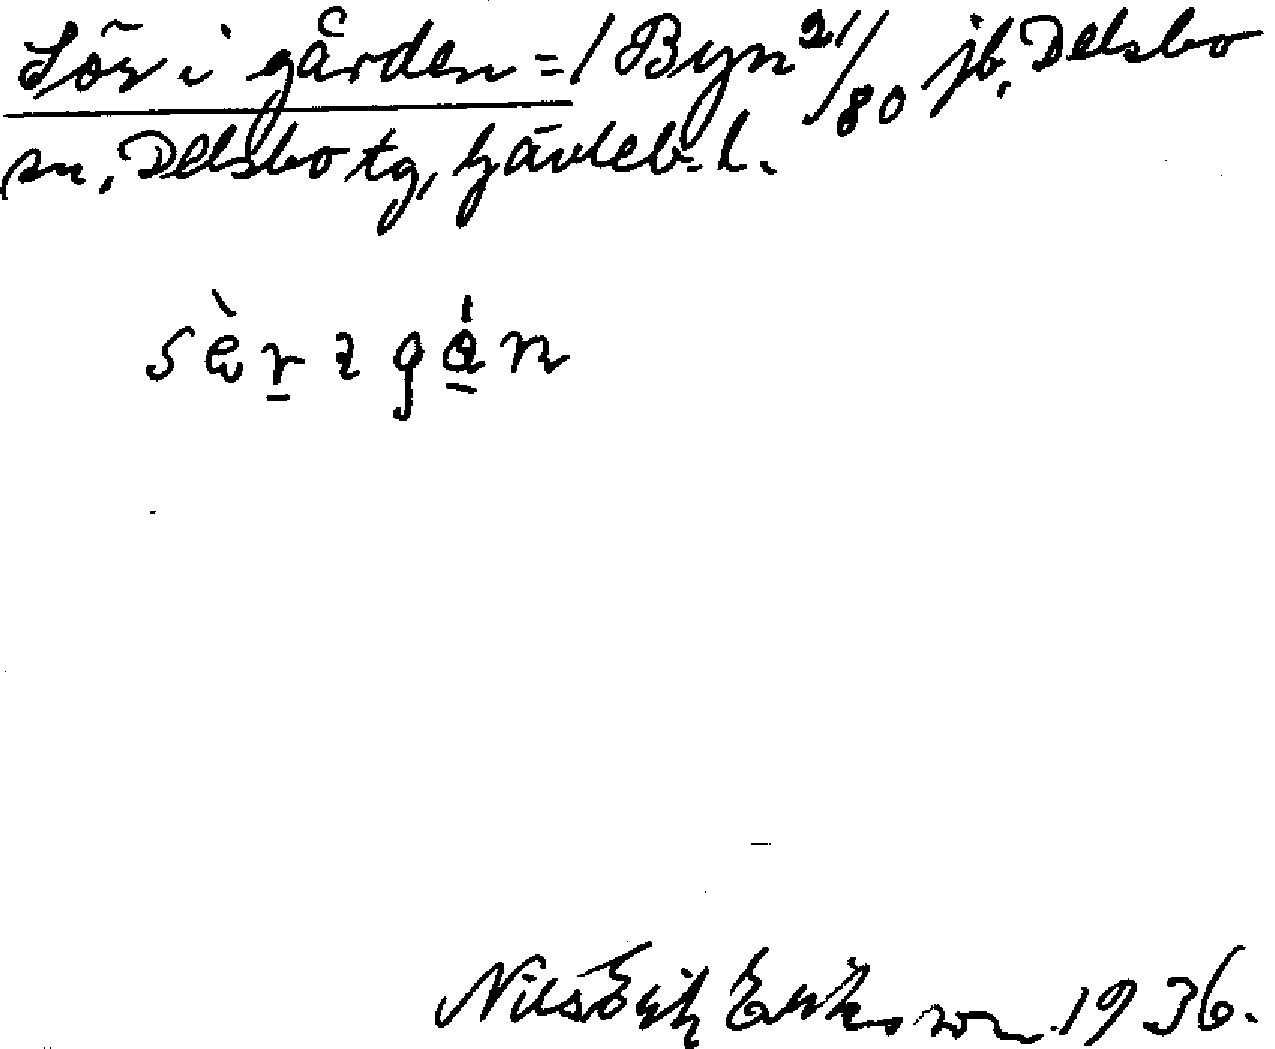 Sör i gården = 1 Byn 21/80 jb, Delsbo
sn, Delsbo tg, Gävleb. l.
sèr ɩ gá̱n
Nils Erik Erikson 1936.